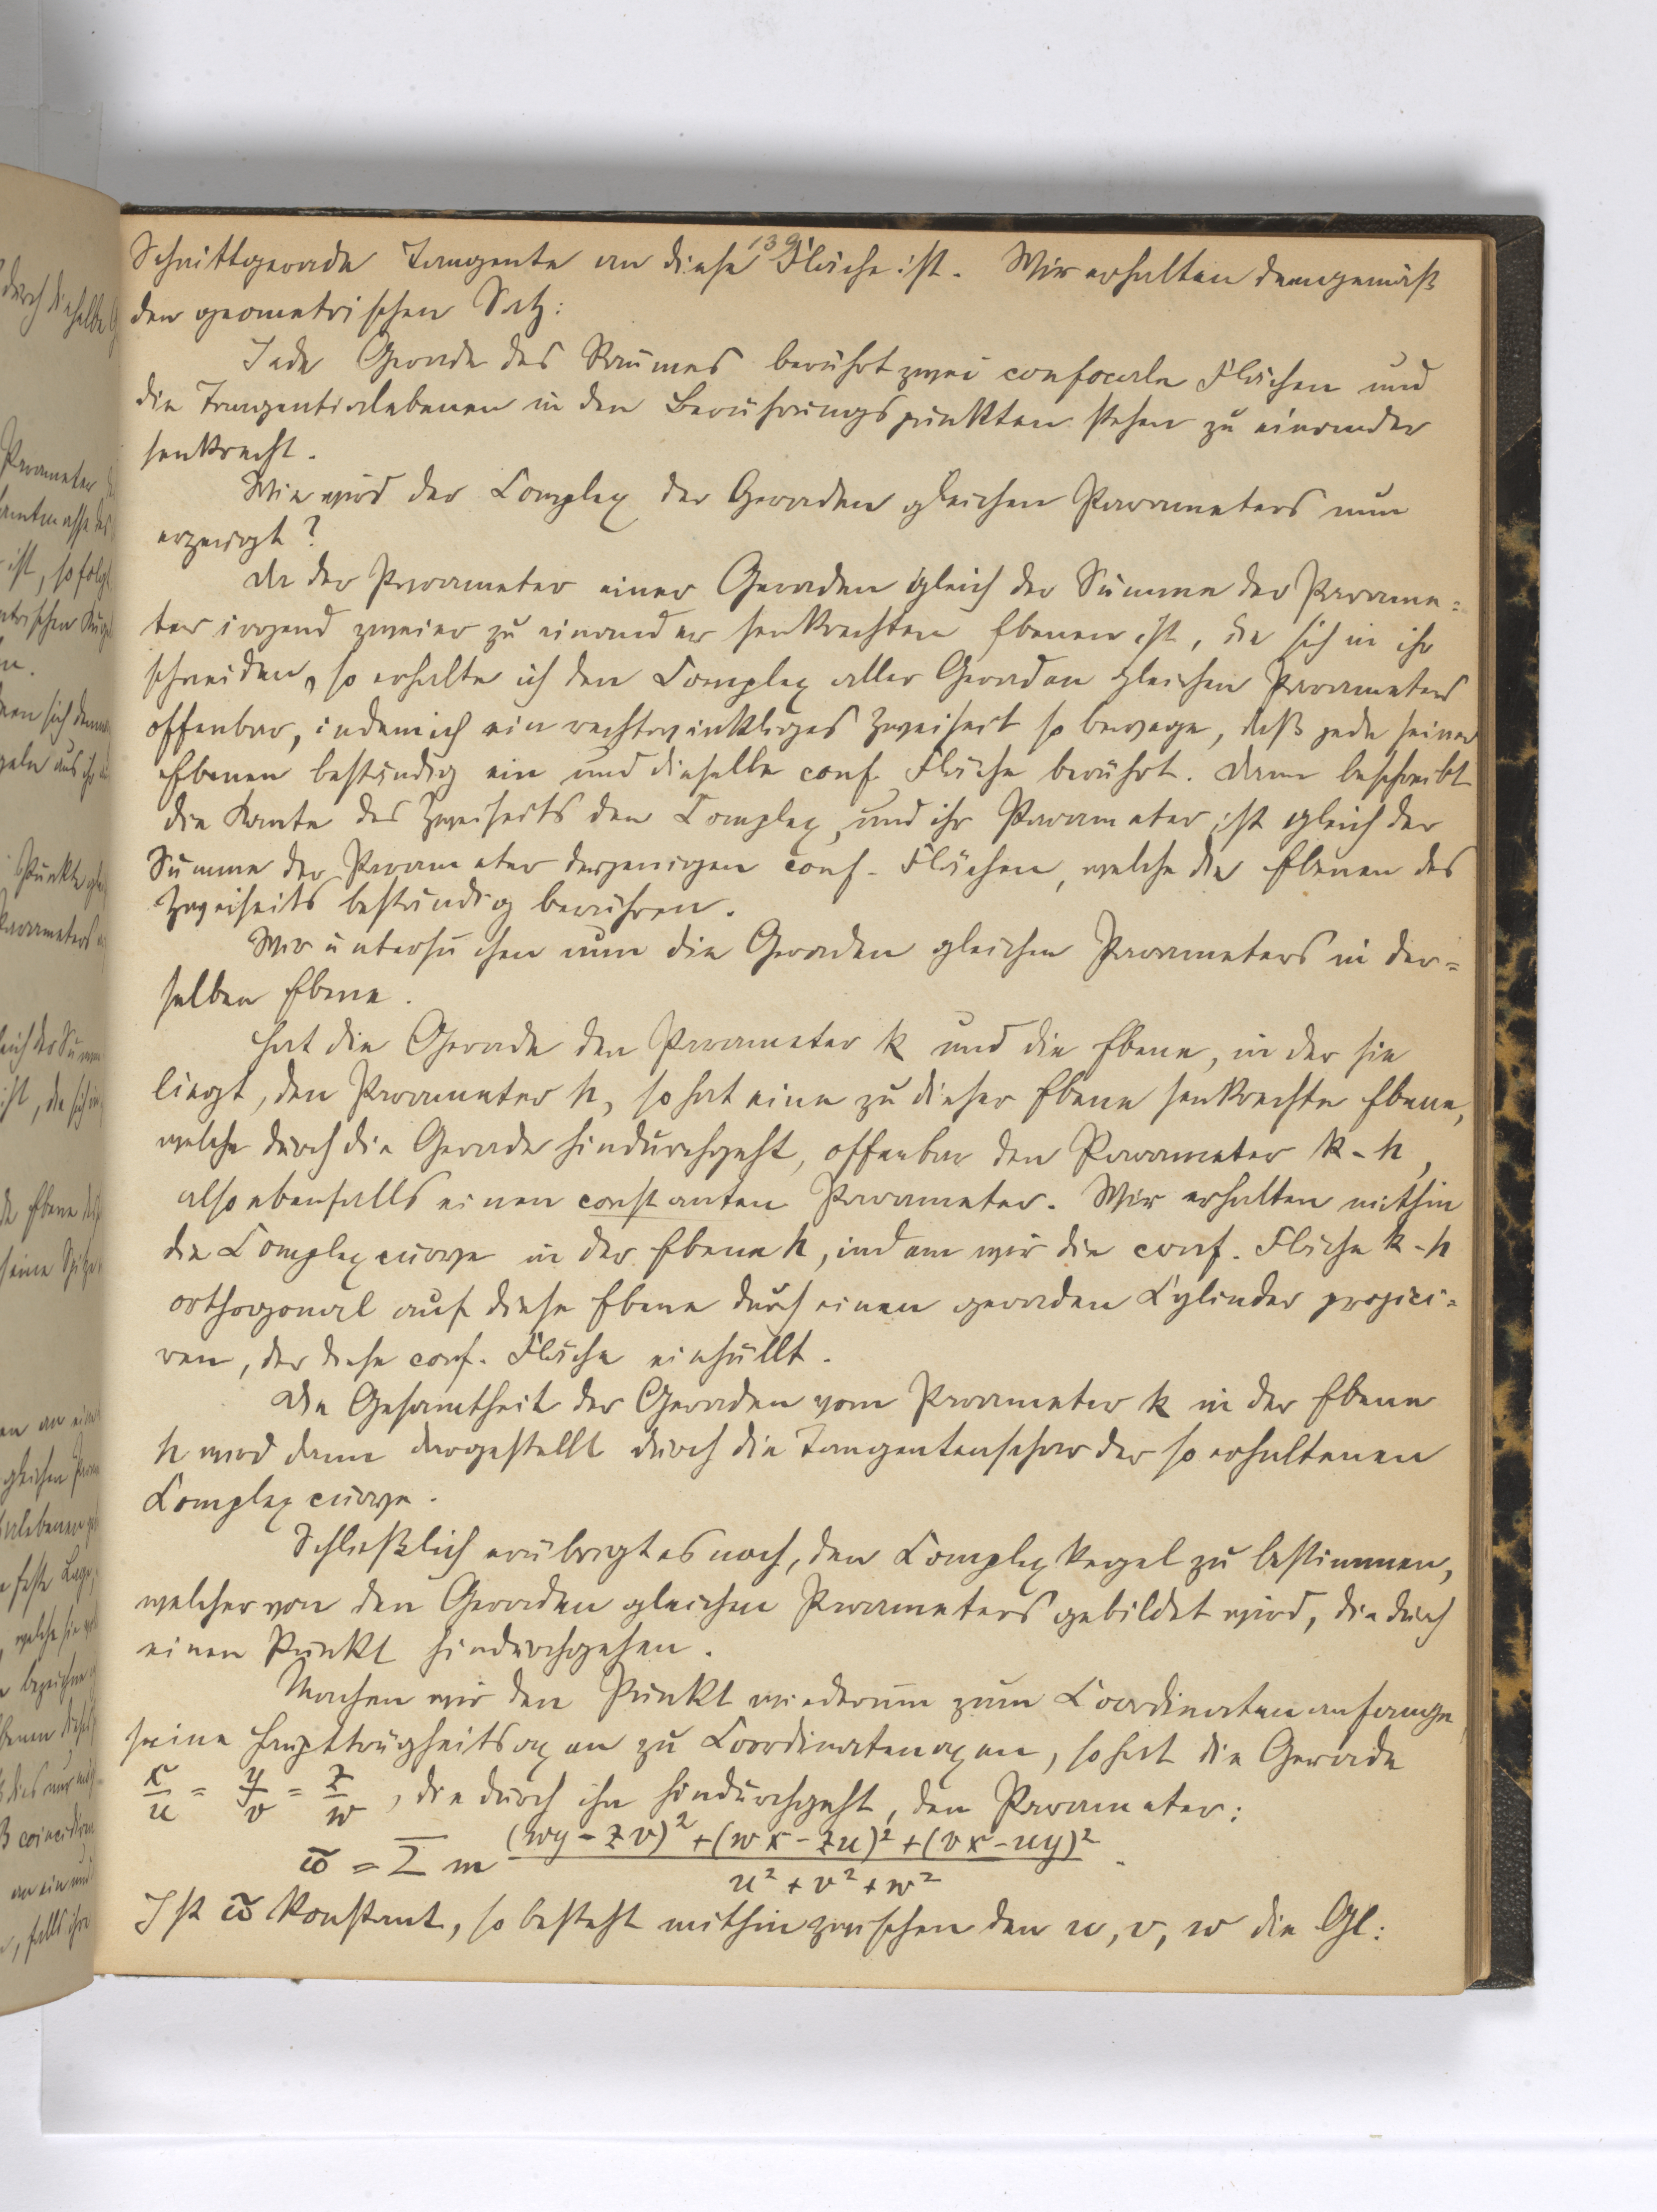 139
Schnittgerade Tangente an diese Fläche ist. Wir erhalten demgemäß
den geometrischen Satz:
Jede Gerade des Raumes berührt zwei confocale Flächen und
die Tangentialebenen in den Berührungspunkten stehen zu einander
senkrecht.
Wie wird der Complex der Geraden gleichen Parameters nun
erzeugt?
Da der Parameter einer Geraden gleich der Summe der Parame=
ter irgend zweier zu einander senkrechten Ebenen ist, die sich in ihr
schneiden, so erhalte ich den Complex aller Geraden gleichen Parameters
offenbar, indem ich ein rechtwinkliges Zweiseit so bewege, daß jede seiner
Ebenen beständig ein und dieselbe conf. Fläche berührt. Dann beschreibt
die Kante des Zweiseits den Complex, und ihr Parameter ist gleich der
Summe der Parameter derjenigen conf. Flächen, welche die Ebenen des
Zweiseits beständig berühren.
Wir untersuchen nun die Geraden gleichen Parameters in der=
selben Ebene.
Hat die Gerade den Parameter k und die Ebene, in der sie
liegt, den Parameter h, so hat eine zu dieser Ebene senkrechte Ebene,
welche durch die Gerade hindurchgeht, offenbar den Parameter k-h,
also ebenfalls einen constanten Parameter. Wir erhalten mithin
die Complexcurve in der Ebene h, indem wir die conf. Fläche k-h
orthogonal auf diese Ebene durch einen geraden Cylinder projici=
ren, der diese conf. Fläche einhüllt.
Die Gesamtheit der Geraden vom Parameter k in der Ebene
h wird dann dargestellt durch die Tangentenschar der so erhaltenen
Complexcurve.
Schließlich erübrigt es noch, den Complexkegel zu bestimmen,
welcher von den Geraden gleichen Parameters gebildet wird, die durch
einen Punkt hindurchgehen.
Machen wir den Punkt wiederum zum Coordinatenanfange,
seine Hauptträgheitsaxen zu Coordinatenaxen, so hat die Gerade
x/u = y/v = z/w, die durch ihn hindurchgeht, den Parameter:
ω̄ = Σ m ((wy-zv)²+(wx-zu)²+(vx-uy)²)/(u²+v²+w²).
Ist ω̄ konstant, so besteht mithin zwischen den u, v, w die Gl: